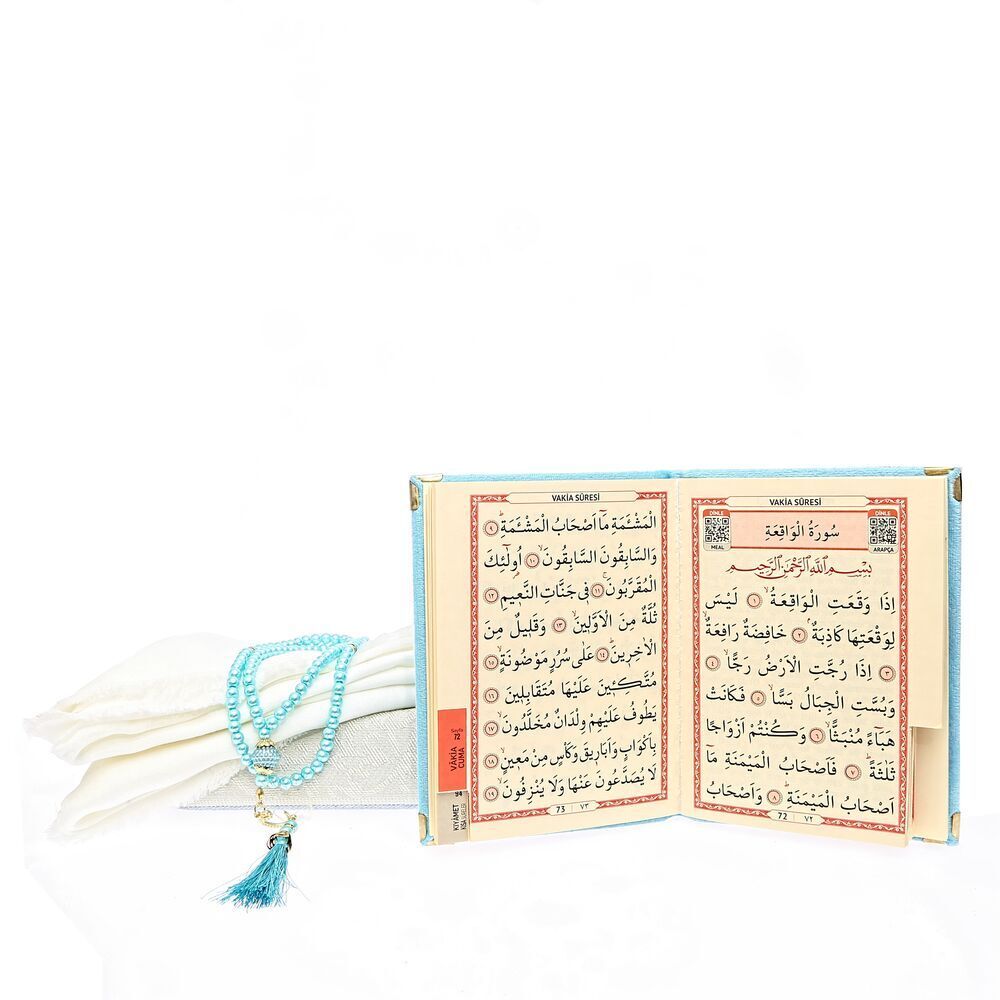 VAKİA SÛRESİ
DİNLE
DİNLE
سُورَةُ الْوَاقِعَةِ
MEAL
ARAPÇA
بِسْمِ اللّٰهِ الرَّحْمٰنِ الرَّحِيمِ
اِذَا وَقَعَتِ الْوَاقِعَةُۙ ١ لَيْسَ
لِوَقْعَتِهَا كَاذِبَةٌۢ ٢ خَافِضَةٌ رَافِعَةٌۙ
٣ اِذَا رُجَّتِ الْاَرْضُ رَجًّاۙ ٤
وَبُسَّتِ الْجِبَالُ بَسًّاۙ ٥ فَكَانَتْ
هَبَٓاءً مُنْبَثًّاۙ ٦ وَكُنْتُمْ اَزْوَاجًا
ثَلٰثَةًۜ ٧ فَاَصْحَابُ الْمَيْمَنَةِ مَٓا
اَصْحَابُ الْمَيْمَنَةِۜ ٨ وَاَصْحَابُ
72 ٧٢
VAKİA SÛRESİ
الْمَشْـَٔمَةِ مَٓا اَصْحَابُ الْمَشْـَٔمَةِۜ ٩
وَالسَّابِقُونَ السَّابِقُونَۙ ١٠ اُو۬لٰٓئِكَ
الْمُقَرَّبُونَۚ ١١ فٖي جَنَّاتِ النَّعٖيمِ ١٢
ثُلَّةٌ مِنَ الْاَوَّلٖينَۙ ١٣ وَقَلٖيلٌ مِنَ
الْاٰخِرٖينَۜ ١٤ عَلٰى سُرُرٍ مَوْضُونَةٍۙ ١٥
مُتَّكِـٖٔينَ عَلَيْهَا مُتَقَابِلٖينَ ١٦
يَطُوفُ عَلَيْهِمْ وِلْدَانٌ مُخَلَّدُونَۙ ١٧
بِاَكْوَابٍ وَاَبَارٖيقَ وَكَأْسٍ مِنْ مَعٖينٍۙ ١٨
لَا يُصَدَّعُونَ عَنْهَا وَلَا يُنْزِفُونَۙ ١٩
73 ٧٣
Sayfa
72
VAKİA
CUMA
94
KIYAMET
KISA SURELER